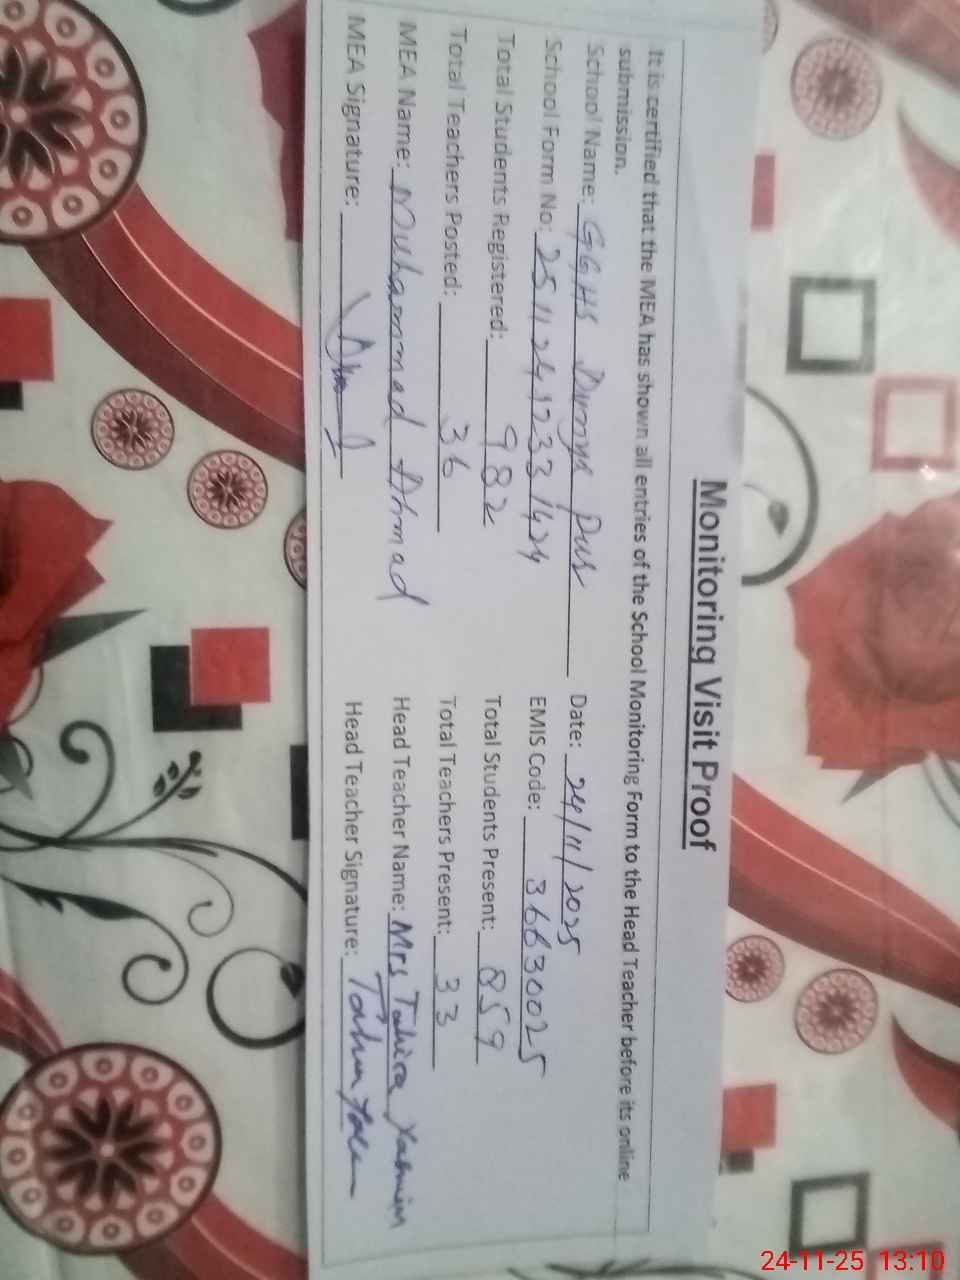 Monitoring Visit Proof
It is certified that the MEA has shown all entries of the School Monitoring Form to the Head Teacher before its online
submission.
School Name: GGHS Dunya Pur Date: 24/11/2025
School Form No: 25112412331424 EMIS Code: 36630025
Total Students Registered: 982 Total Students Present: 859
Total Teachers Posted: 36 Total Teachers Present: 33
MEA Name: Muhammad Ahmad Head Teacher Name: Mrs Tahira Yasmin
MEA Signature: Head Teacher Signature:
24-11-25 13:10